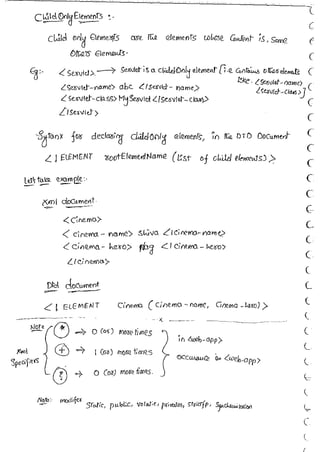 Child Only Elements :-
Child only Elements are the elements whose Content is, Some
Others Elements-
Eg:- <Servlet> → Servlet is a childOnly element [i.e Contains others elements
like <Servlet-name>
<Servlet-name> abc </Servlet-name>
<Servlet-class>]
<Servlet-class> MyServlet </Servlet-class>
</Servlet>
Syntanx for declaring childOnly elements, in the DTD Document
<! ELEMENT rootElementName (list of child elements)>
Let's take example:-
Xml document
<Cinema>
<Cinema-name> Shiva </Cinema-name>
<Cinema-hero> </Cinema-hero>
</Cinema>
Dtd document
<! ELEMENT Cinema (Cinema-name, Cinema-hero) >
x
Note
* → 0 (or) more times
in <web-app>
Xml Specifiers
+ → 1 (or) more times
occurance in <web-app>
? → 0 (or) more times.
Note: modifiers
Static, public, volatile, private, strictfp, Synchronization